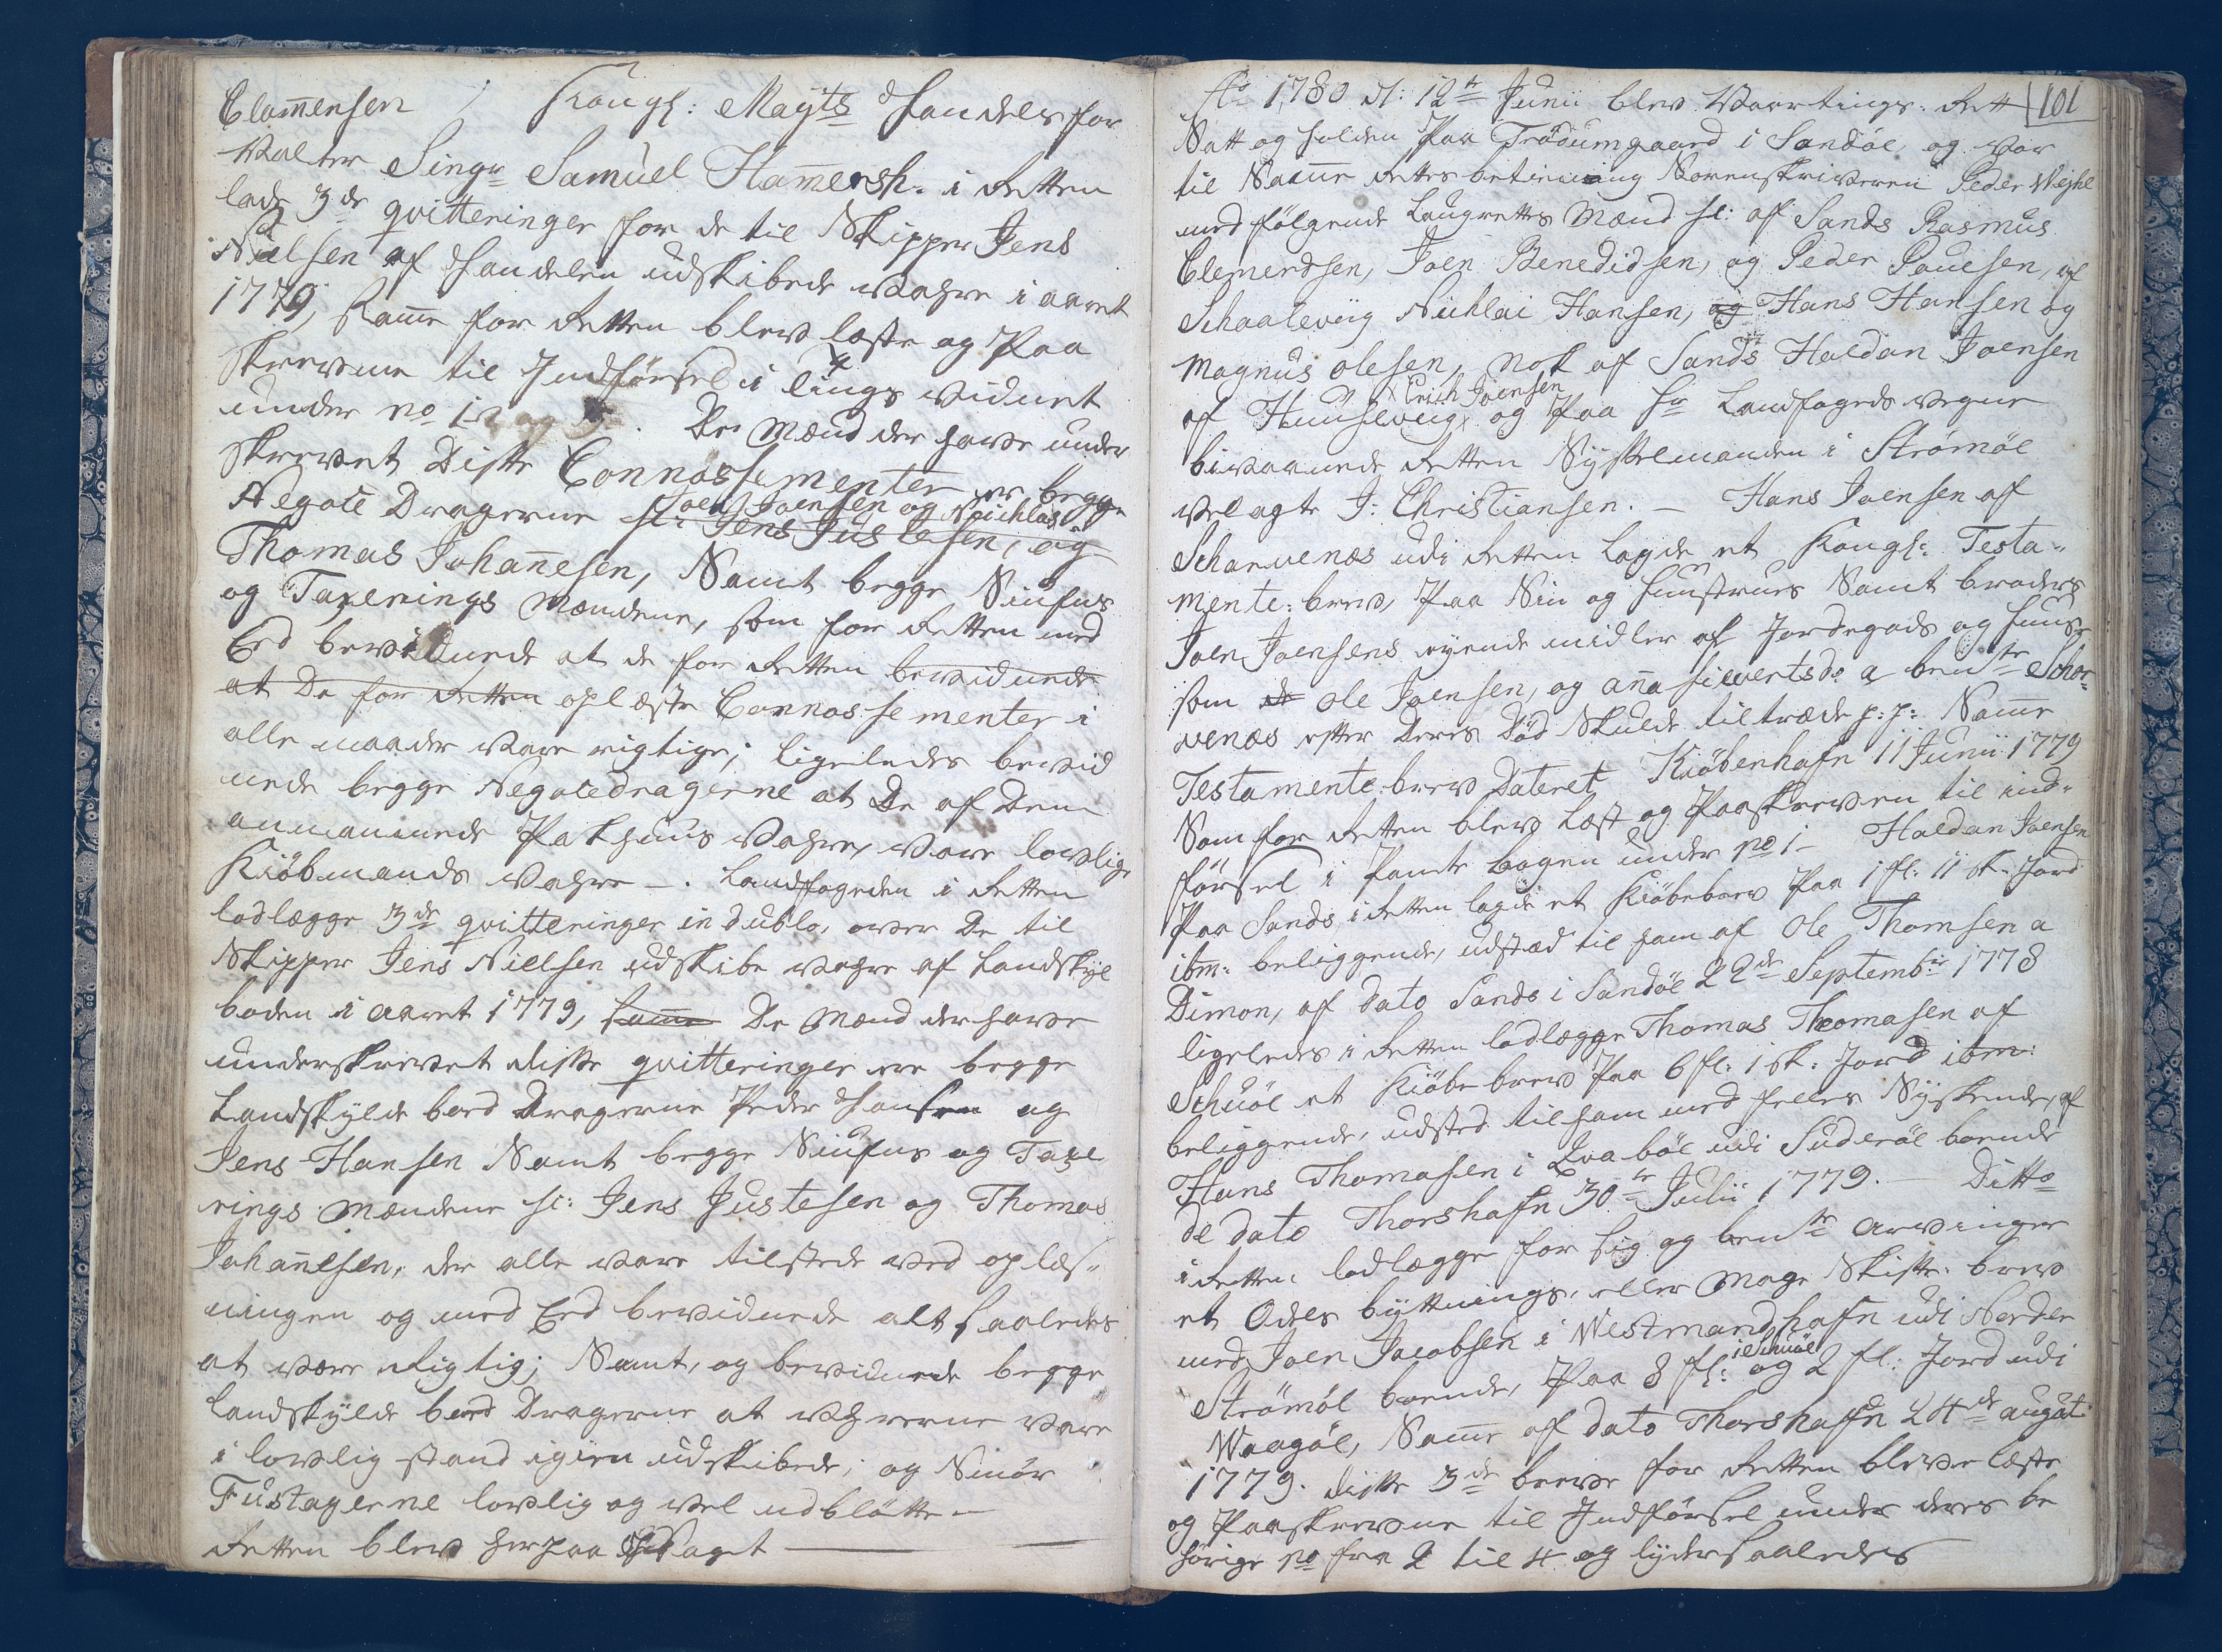 Clamensen / Kongl: Mayts Handels for
Valter Singr Samuel Hamersh. i Retten
lade 3de qvitteringer for de til Skipper Jens
Nielsen af Handelen udskibede Vahre i aaret
1779, Samme for Retten blev læste og Paa
skrevene til Indførsel i tings vidnet
under no 1 2 og 3. De Mænd der have under
skrevet Disse Connossementer er begge
Negote Dragerne sl: Joen Joensen og Nichlas
Jens Justesen, og
Thomas Johannesen, Samt begge Niufns
og Taxerings Mændene, som for Retten med
Eed bevidnede at de for Retten bevidnede
at De for Retten oplæste Connossementer i
alle maader vare rigtige; ligeledes bevid
nede begge Negotedragerne at De af Dem
annammede Pakhuus Vahre, vare lovlige
Kiöbmands Vahre —. Landfogeden i Retten
lodlægge 3de qvitteringer in dublo, over De til
Skipper Jens Nielsen udskibe Vahre af Landskyl
boden i aaret 1779, Samme De Mænd der have
underskrevet disse qvitteringer ere begge
Landskylde bod Dragerne Peder Hansen og
Jens Hansen Samt begge Niufns og Taxe
rings Mændene sl: Jens Justesen og Thomas
Johannesen, der alle vare tilstede ved oplæs-
ningen og med Eed bevidnede alt saaledes
at være Rigtig; Samt, og bevidnede begge
Landskylde bod Dragerne at Vahrerne vare
i lovlig stand igien udskibede; og Smör
Fustagerne lovlig og vel udblötte —
Retten blev herpaa Ophævet —
101
Ao 1780 d: 12te Junii blev Vaartings: Rett
Satt og holden Paa Tródumgaard i Sandöe, og var
til Samme Rettes betiening Sorenskriveren Peder Wejhe
med følgende Laugrettes Mænd sl: af Sands Rasmus
Clemendsen, Joen Benedidsen, og Peder Pouesen, af
Schaaleviig Nichlai Hansen, og Hans Hansen og
Magnus Olesen, Nok af Sands Haldan Joensen
af Huuseviig Erich Joensen og Paa Hr Landfogeds Vegne
bivaanede Retten Sysselmanden i Strömöe
velagte J: Christiansen. — Hans Joensen af
Scharvenæs udi Retten lagde et Kongl: Testa-
mente: brev, Paa Sin og hustrues Samt broders
Joen Joensens eyende midler af Jordegods og huuse
som de Ole Joensen, og Anna Sivertsdo a bente Schar-
venæs efter Deres Död Skulde tiltræde p: p: Samme
Testamente: brev Dateret Kiöbenhafn 11 Junii 1779
Som for Retten blev læst og Paaskreven til ind-
førsel i Pante bogen under no 1 — Haldan Joensen
Paa Sands i Retten lagde et Kiöbebrev Paa 1 fl: 11 sk: Jord
ibm: beliggende, udsted til ham af Ole Thomsen a
Dimon, af dato Sands i Sandöe 22de Septembr 1778
ligeledes i Retten lodlægge Thomas Thomasen af
Schuöe et Kiöbe brev Paa 6 fl: 1 sk: Jord ibm:
beliggende, udsted til ham med felles Sýskende, af
Hans Thomasen i Qvalböe udi Suderöe boende
de dato Thorshafn 30te Julii 1779. — Ditto
i Retten lodlægge for Sig og bente arvinger
et Odels býttnings, eller Mage Skifte: brev
med Joen Jacobsen i Westmandhafn udi Norder
Strömöe boende, Paa 8 fl: i Schuöe og 2 fl: Jord udi
Waagöe, Samme af dato Thorshaffn 24de augúst
1779. disse 3de breve for Retten bleve læste
og Paaskrevne til Indførsel under deres be
hörige no fra 2 til 4 og lýder saaledes